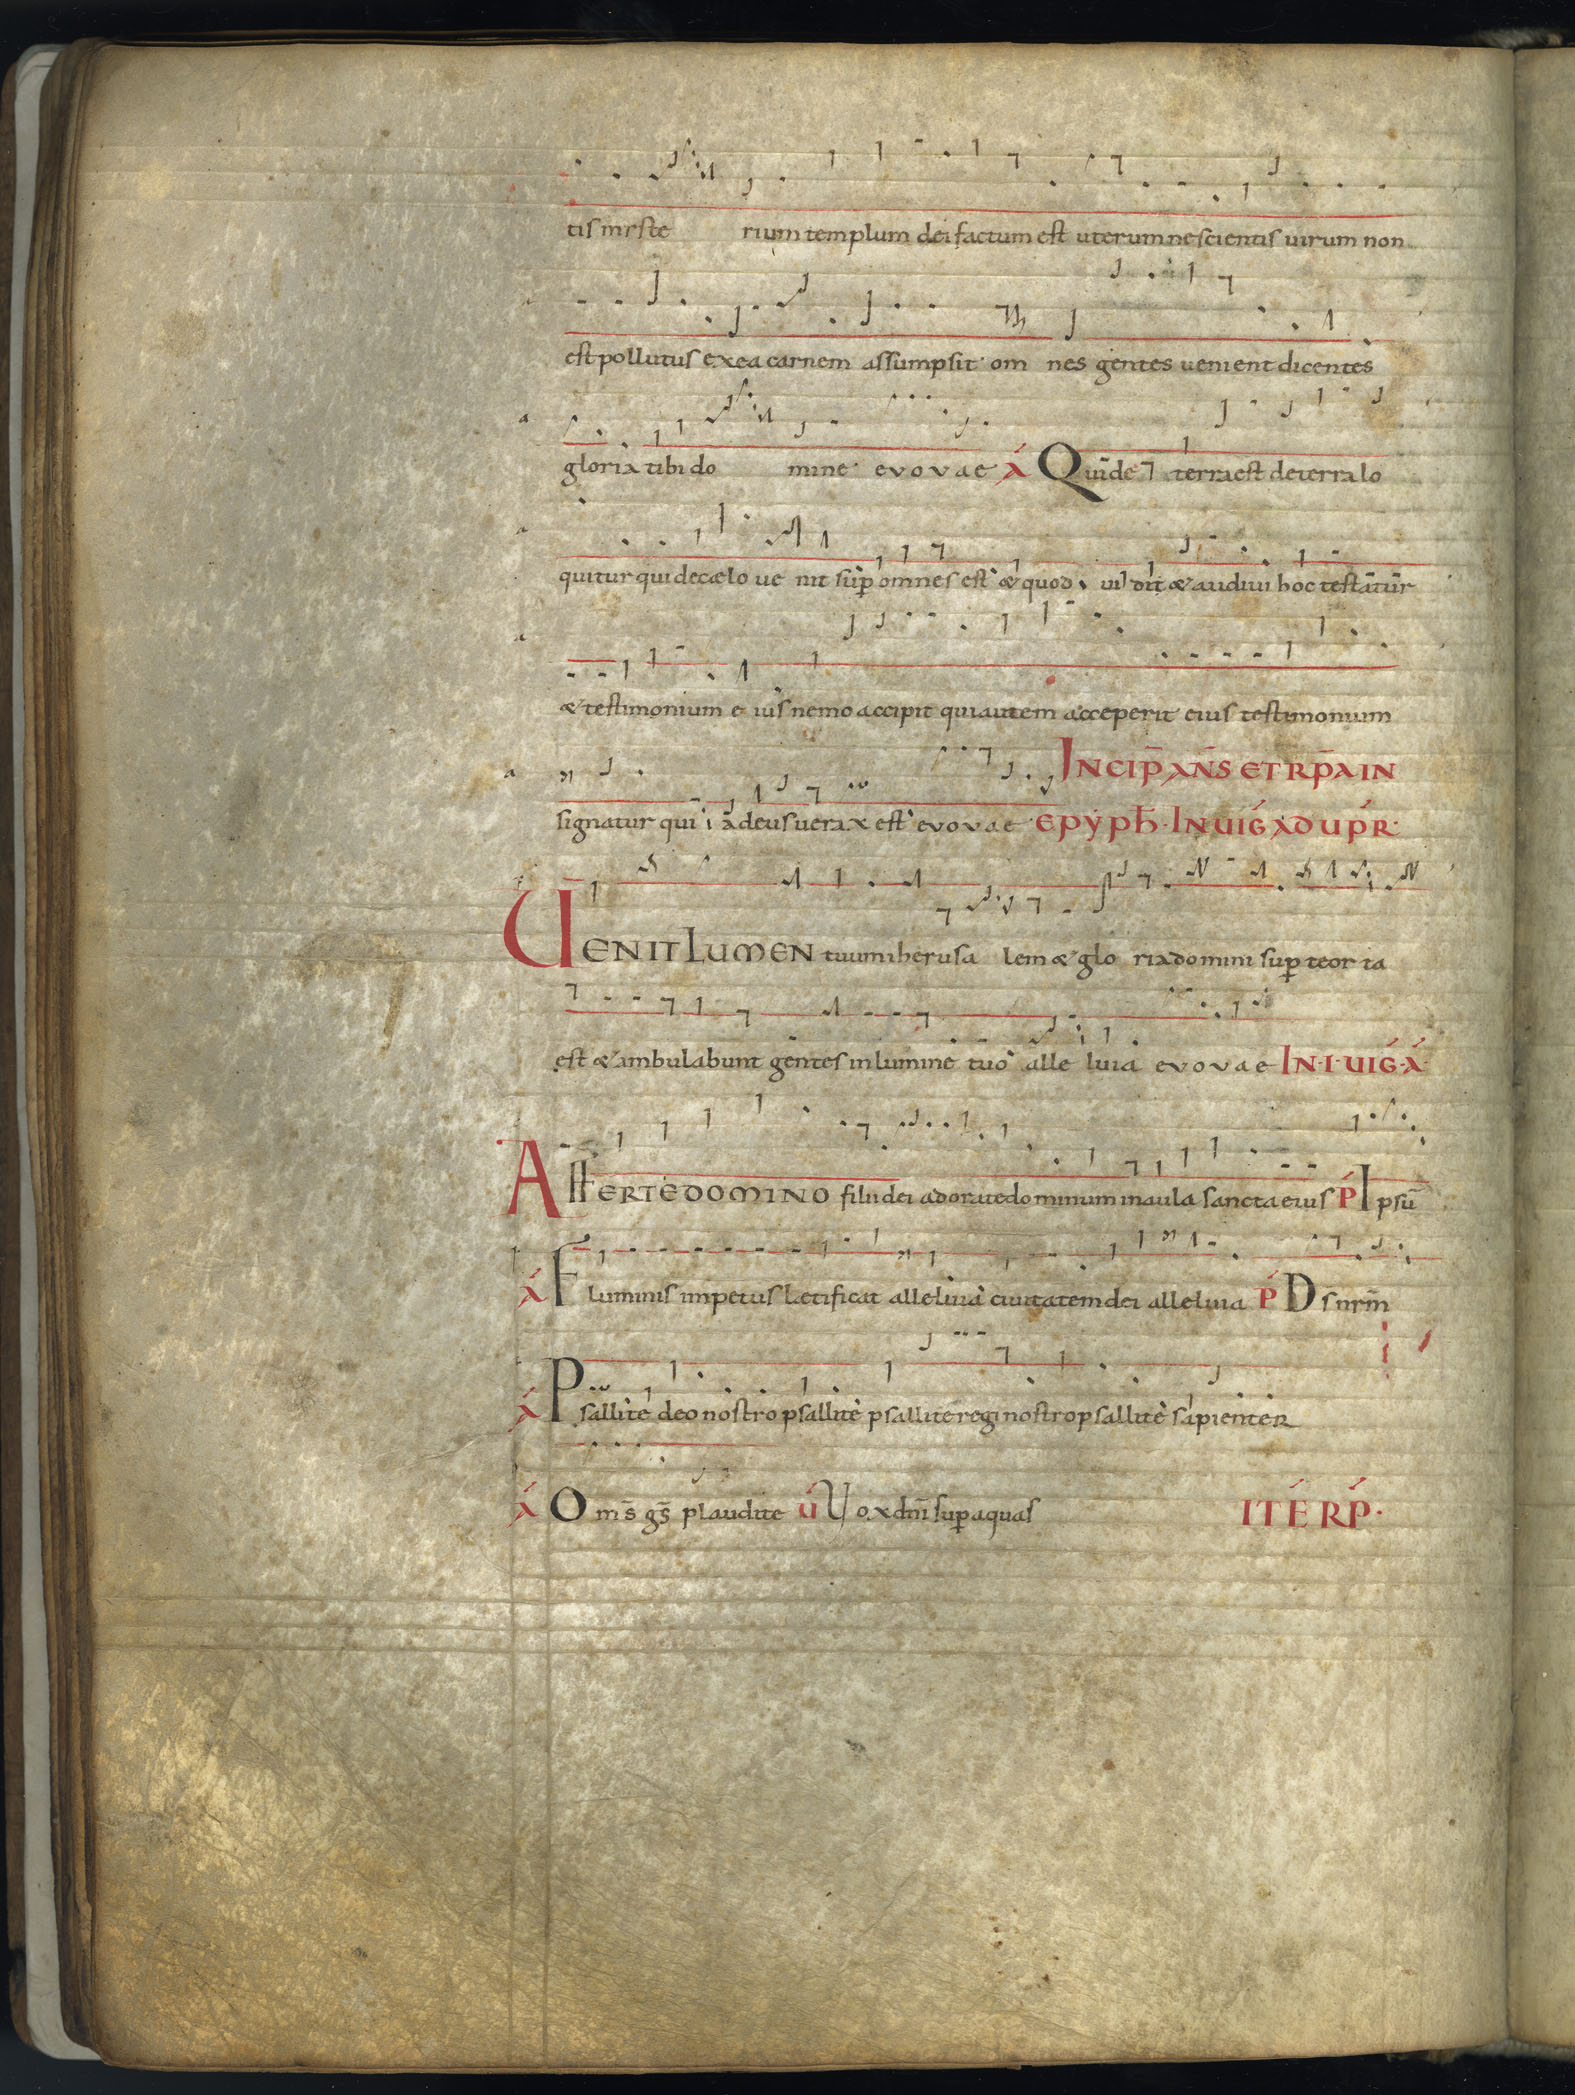 tis mẏste rium templum dei factum est uterum nescientis uirum non
est pollutus ex ea carnem assumpsit om nes gentes uenient dicentes
gloria tibi do mine evovae A Qui de terra est de terra lo
quitur qui de cælo ue nit sup omnes est & quod uidit & audiuit hoc testatur
& testimonium eius nemo accipit qui autem acceperit eius testimonium
signatur quia deus uerax est evovae INCIP ANS ET RP A IN
EPYPH IN UIG AD UPR
UENIT LUMEN tuum iherusa lem & glo ria domini sup te orta
est & ambulabunt gentes in lumine tuo alle luia evovae IN I UIG A
AFFERTE DOMINO filii dei adorate dominum in aula sancta eius P Ipsū
A Fluminis impetus lætificat alleluia ciuitatem dei alleluia P Ds nrm
A Psallite deo nostro psallite psallite regi nostro psallite sapienter
A Oms gs plaudite U Uox dni sup aquas ITE RP